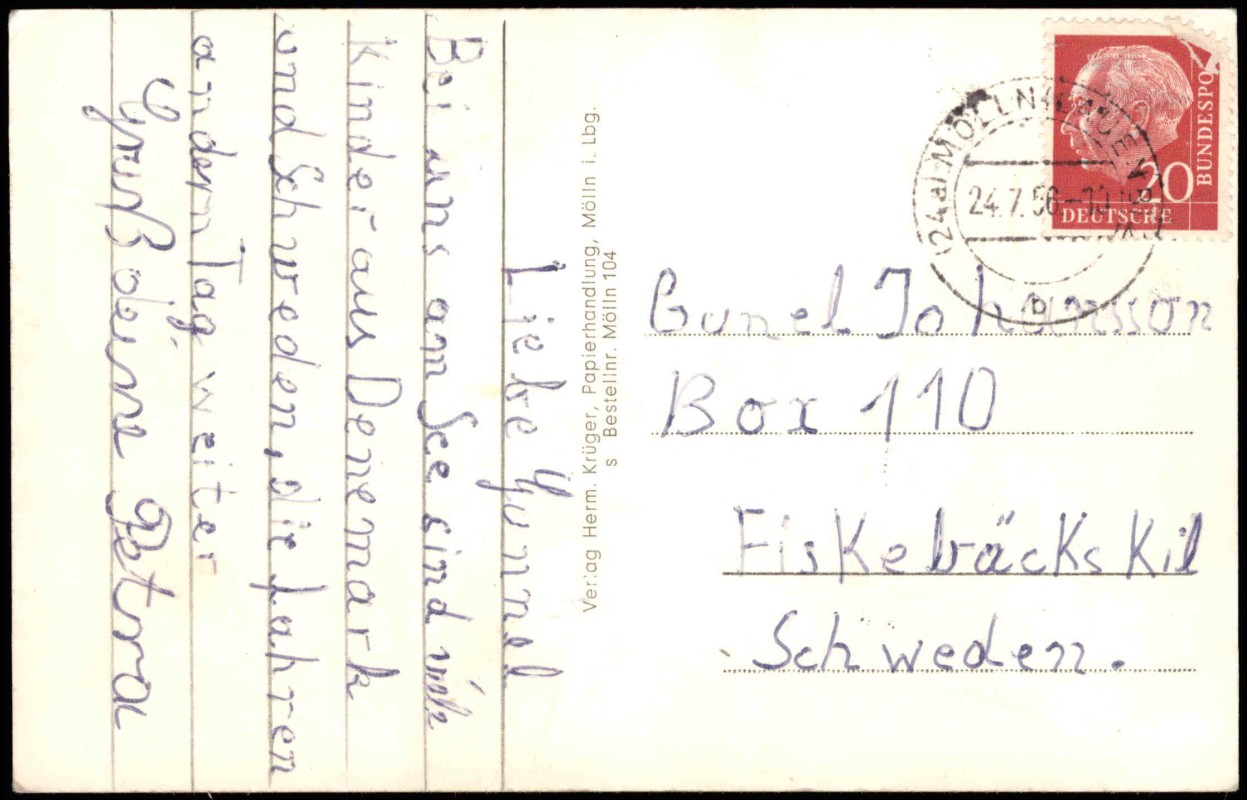 Liebe Gunnel
Bei uns am See sind viele
Kinder aus Denemark
und Schweden, die fahren
andern Tag weiter
Gruß deine Petra
Verlag Herm. Krüger, Papierhandlung, Mölln i. Lbg.
s Bestellnr. Mölln 104
(24a) MÖLLN (LAUENB
24.7.56-10
b
20
DEUTSCHE
BUNDESPO
Gunel Johansson
Box 110
Fiskebäckskil
Schweden.